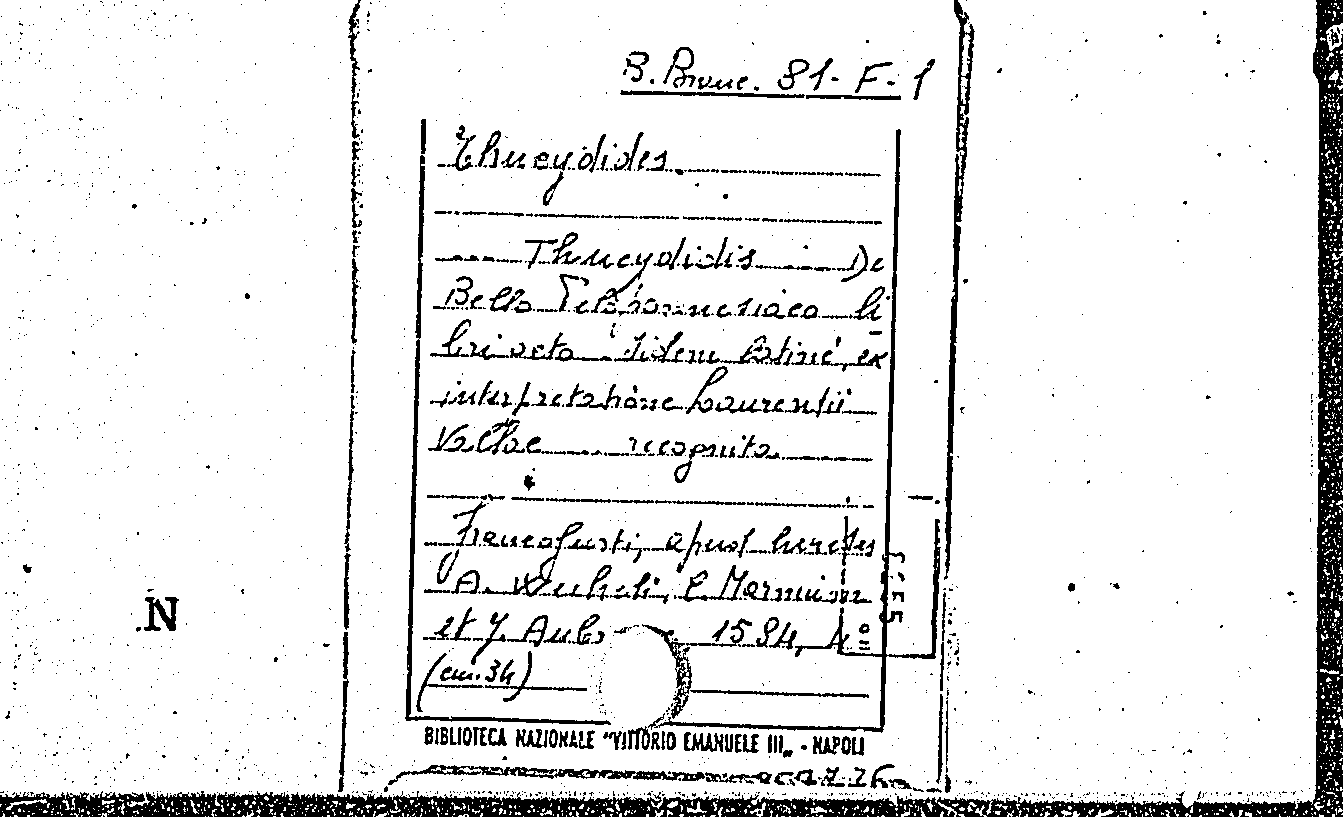 B. Branc. 81-F-1
Thucydides.
Thucydidis ... De
Bello Peloponnesiaco li
bri octo. Iidem latinè, ex
interpretatione Laurentii
Vallae ... recognita.
Francofurti, apud heredes
A. Wecheli, C. Marnium
et J. Aubr 1594, 4º
(cm. 34)
N
BIBLIOTECA NAZIONALE "VITTORIO EMANUELE III„ - NAPOLI